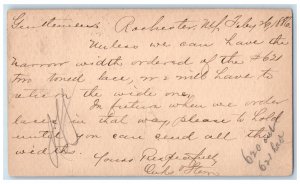 Gentlemen: Rochester, NY, Feby 26, 1886
Unless we can have the
narrow width ordered of the #621
Two toned lace, we will have to
return the wide one,
In future when we order
laces in that way please to hold
until you can send all the
widths.
Yours Respectfully